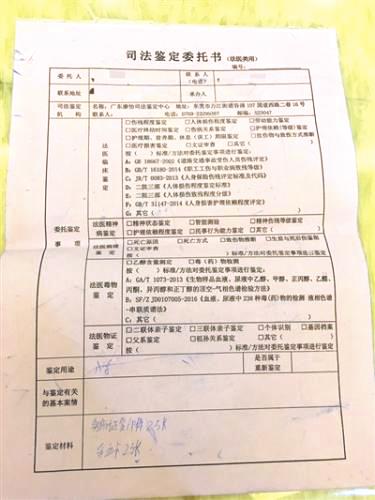 司法鉴定委托书（法医类用）
编号：
委托人
联系人
（电话）
联系地址
（承办人）
司法鉴定
机构
名称：广东康怡司法鉴定中心 地址：东莞市万江街道
电话：0769-22296387 邮编：523047
委托鉴定
事项
法医临床鉴定
□伤残程度鉴定 □人体损伤程度鉴定 □劳动能力鉴定
□医疗终结时间鉴定 □伤病关系鉴定 □护理依赖(等级)鉴定
□护理期、营养期、休息（误工）期鉴定
□医疗损害鉴定 □文证审查 □其它（ ）
按（ ）标准/方法对委托鉴定事项进行鉴定：
A：GB 18667-2002《道路交通事故受伤人员伤残评定》
B：GB/T 16180-2014《职工工伤与职业病致残等级》
C：JR/T 0083-2013《人身保险伤残评定标准及代码》
D：二院三部《人体损伤程度鉴定标准》
E：二院三部《人体损伤致残程度分级》
F：GB/T 31147-2014《人身损害护理依赖程度评定》
G：其它（ ）
法医精神
病鉴定
□精神状态鉴定 □智能测验 □精神伤残等级鉴定
□护理依赖程度鉴定 □民事行为能力鉴定 □其它（ ）
法医病理
鉴定
□死亡原因 □死亡方式 □致伤物推断
□文证审查 □其它（
按（ ）标准/方法对委托鉴定事项进行鉴定
法医毒物
鉴定
□乙醇含量测定 □毒（药）物检测
按（ ）标准/方法对委托鉴定事项进行鉴定：
A：GA/T 1073-2013《生物样品血液、尿液中乙醇、甲醇、正丙醇、乙醛、
丙酮、异丙醇和正丁醇的顶空-气相色谱检验方法》
B：SF/Z JD0107005-2016《血液、尿液中 238 种毒(药)物的检测 液相色谱
-串联质谱法》
C：其它（
法医物证
鉴定
□二联体亲子鉴定 □三联体亲子鉴定 □个体识别 □基因档案
□父系鉴定 □祖孙关系鉴定 □其它（
按（ ）标准/方法对委托鉴定事项进行鉴定
鉴定用途
是否属于
重新鉴定
与鉴定有关
的基本案情
鉴定材料